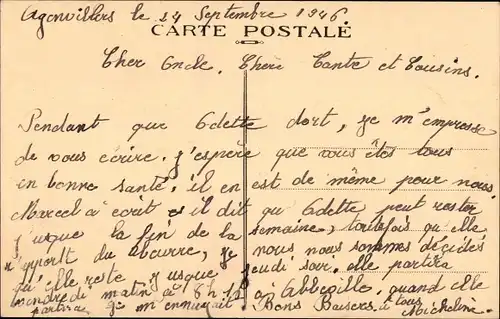 Agenvillers le 24 Septembre 1946.
CARTE POSTALE
Cher Oncle, Chère Tante et Cousins.
Pendant que Odette dort, je m'empresse
de vous écrire. j'espère que vous êtes tous
en bonne santé, il en est de même pour nous.
Marcel a écrit et il dit qu'Odette peut rester
jusque la fin de la semaine, toutefois qu'elle
m'apport du beurre, je nous nous sommes décidés
qu'elle reste jusque jeudi soir, elle partira
vendredi matin à 8h 12 à Abbeville, quand elle
partira je m'ennuirait Bons Baisers à tous
Micheline.